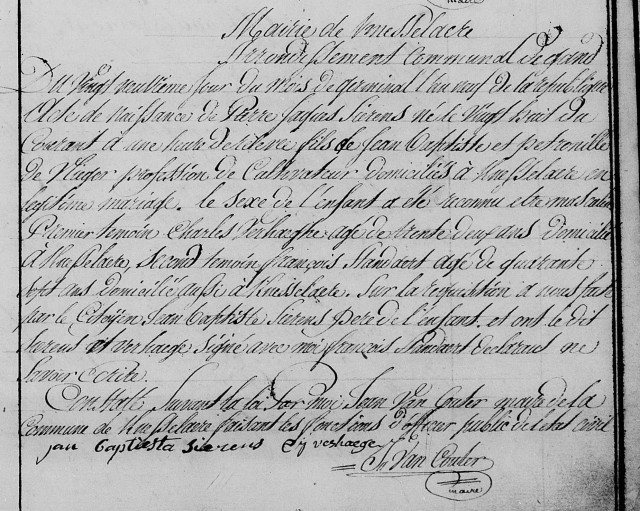 maire
Mairie de Knesselaere
Arrondissement Communal de gand
Du vingt neuvieme jour du mois de germinal l'an neuf de la republique
Acte de naissance de Pierre jaques Sierens né le vingt huit du
Courant à une heure de relevée fils de Jean Baptiste et petronille
De Vlieger profession de Cultivateur domiciliés à Knesselaere en
legitime mariage. le sexe de l'enfant a été reconnu etre masculin
Premier temoin Charles Verhaeghe agé de trente deux ans domicilié
à Knesselaere, second temoin françois Standaert agé de quarante
sept ans domicilée aussi à Knesselaere. Sur la requisition à nous faite
par le Citoyen Jean Baptiste Sierens pere de l'enfant. et ont le dit
Sierens et verhaege signé avec moi françois Standaert declarant ne
savoir ecrire.
Constaté suivant la loi par moi Jean Van Couter maire de la
Commune de Knesselaere faisant les fonctions d'officier public de l'état civil
jan baptiesta sierens verhaege
Van Couter
maire